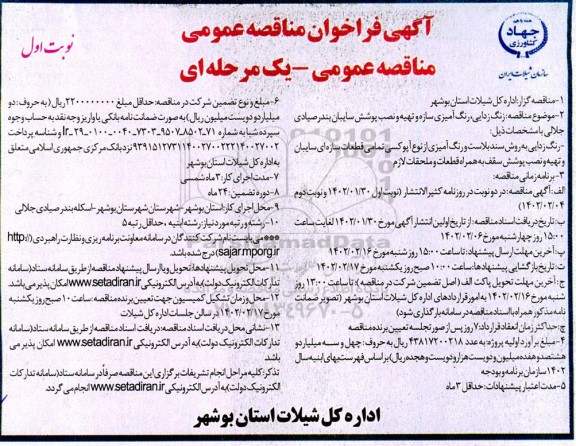 آگهی فراخوان مناقصه عمومی
مناقصه عمومی – یک مرحله ای
نوبت اول
جهاد
کشاورزی
سازمان شیلات ایران
۱- مناقصه گزار: اداره کل شیلات استان بوشهر
۲- موضوع مناقصه: زنگ زدایی، رنگ آمیزی سازه و تهیه و نصب پوشش سایبان بندر صیادی
جلالی با مشخصات ذیل:
-رنگ زدایی به روش سندبلاست و رنگ آمیزی از نوع آپوکسی تمامی قطعات سازه ای سایبان
و تهیه و نصب پوشش سقف به همراه قطعات و ملحقات لازم
۳- برنامه زمانی مناقصه:
الف: آگهی مناقصه: در دو نوبت در روزنامه کثیر الانتشار (نوبت اول ۱۴۰۲/۰۱/۳۰ و نوبت دوم
۱۴۰۲/۰۲/۰۴)
ب: تاریخ دریافت اسناد مناقصه: از تاریخ اولین انتشار آگهی مورخ ۱۴۰۲/۰۱/۳۰ لغایت ساعت
۱۵:۰۰ روز چهارشنبه مورخ ۱۴۰۲/۰۲/۰۶
پ: آخرین مهلت ارسال پیشنهاد: تا ساعت ۱۵:۰۰ روز شنبه مورخ ۱۴۰۲/۰۲/۱۶
ت: تاریخ بازگشایی پیشنهادها: ساعت ۱۰:۰۰ صبح روز یکشنبه مورخ ۱۴۰۲/۰۲/۱۷
ج: آخرین مهلت تحویل پاکت الف (اصل تضمین شرکت در مناقصه): تا ساعت ۱۳:۰۰ روز
شنبه مورخ ۱۴۰۲/۰۲/۱۶ به امور قراردادهای اداره کل شیلات استان بوشهر (تصویر ضمانت
نامه مذکور همراه با اسناد مناقصه در سامانه بارگذاری شود)
چ: حداکثر زمان انعقاد قرارداد: ۷ روز پس از صور تجلسه تعیین برنده مناقصه
۴- مبلغ برآورد اولیه پروژه: به عدد ۴۳۸۱۷۲۰۰۲۱۸ ریال به حروف: چهل و سه میلیارد و
هشتصد و هفده میلیون و دویست هزار و دویست و هجده ریال) بر اساس فهرست بهای ابنیه سال
۱۴۰۲ سازمان برنامه و بودجه
۵- مدت اعتبار پیشنهادات: حداقل ۳ ماه
۶- مبلغ و نوع تضمین شرکت در مناقصه: حداقل مبلغ ۲۲۰۰۰۰۰۰۰۰ ریال (به حروف: دو
میلیارد و دویست میلیون ریال) به صورت ضمانت نامه بانکی یا واریز وجه نقد به حساب وجوه
به اداره کل شیلات استان بوشهر
۷- مدت اجرای کار: ۳ ماه شمسی
۸- دوره تضمین: ۲۴ ماه
۹- محل اجرای کار: استان بوشهر- شهرستان بوشهر- اسکله بندر صیادی جلالی
۱۰- رشته و رتبه مورد نیاز: رشته: ابنیه، حداقل رتبه ۵
***می بایست نام شرکت کنندگان در سامانه معاونت برنامه ریزی و نظارت راهبردی (http://
sajar.mporg.ir) درج شده باشد
۱۱- محل تحویل پیشنهادها: تحویل و یا ارسال پیشنهاد مناقصه از طریق سامانه ستاد (سامانه
تدارکات الکترونیک دولت) به آدرس الکترونیکی www.setadiran.ir امکان پذیر می باشد.
۱۲- محل و زمان تشکیل کمیسیون جهت تعیین برنده مناقصه: ساعت ۱۰ صبح روز یکشنبه
مورخ ۱۴۰۲/۰۲/۱۷ در سالن جلسات اداره کل شیلات
۱۳- نشانی محل دریافت اسناد مناقصه: دریافت اسناد مناقصه از طریق سامانه ستاد (سامانه
تدارکات الکترونیک دولت) به آدرس الکترونیکی www.setadiran.ir امکان پذیر می
باشد
تذکر: کلیه مراحل انجام تشریفات برگزاری این مناقصه صرفاً در سامانه ستاد (سامانه تدارکات
الکترونیک دولت) به آدرس الکترونیکی www.setadiran.ir انجام می گردد.
اداره کل شیلات استان بوشهر